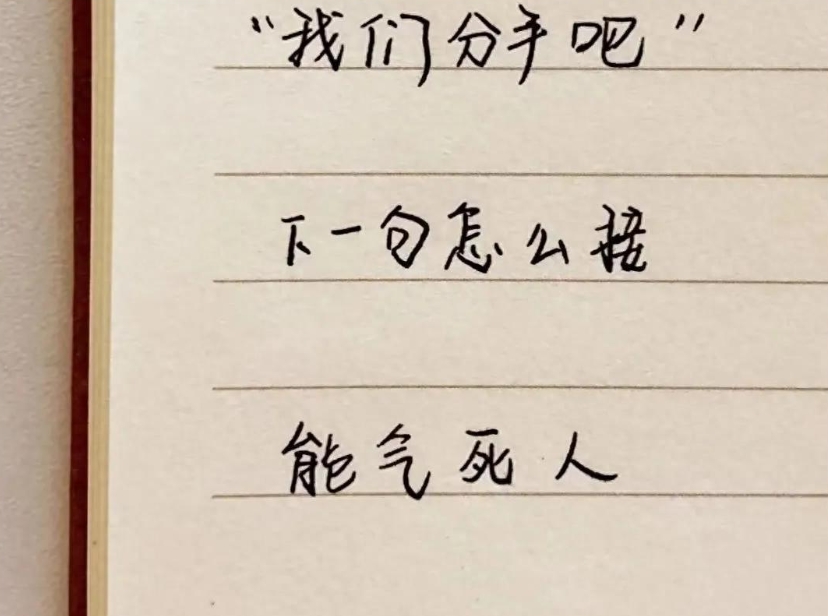 “我们分手吧”
下一句怎么接
能气死人